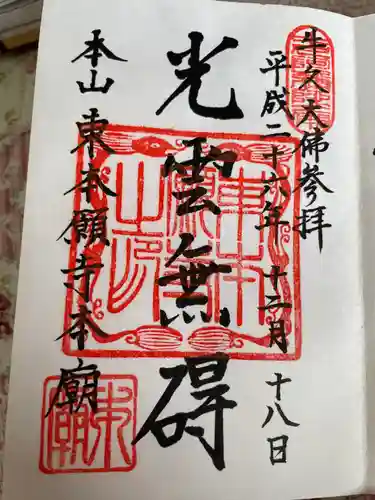 牛久大佛参拝
平成二十六年十二月十八日
光雲無碍
本山東本願寺本廟